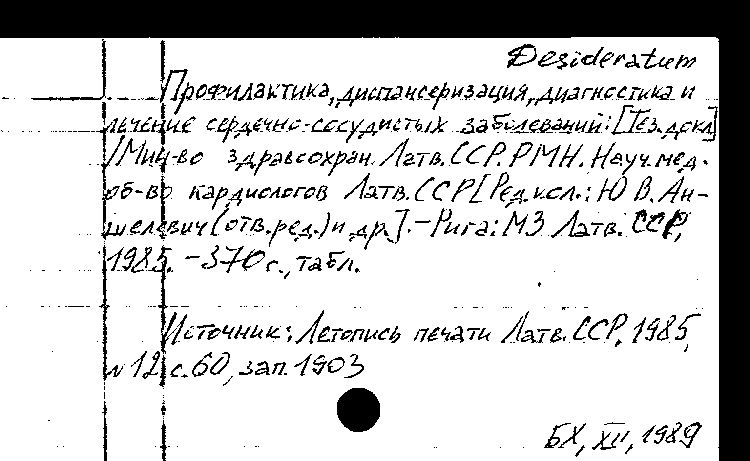 Desideratum
Профилактика, диспансеризация, диагностика и
лечение сердечно-сосудистых заболеваний: [Тез. докл.]
/Мин-во здравоохран. Латв. ССР. РМН. Науч. мед.
об-во кардиологов Латв. ССР [Ред. кол.: Ю. В. Ан-
шелевич (отв. ред.) и др.]. – Рига: МЗ Латв. ССР,
1985. – 370 с., табл.
Источник: Летопись печати Латв. ССР, 1985,
N 12, с. 60, зап. 1903
БХ, XII, 1989